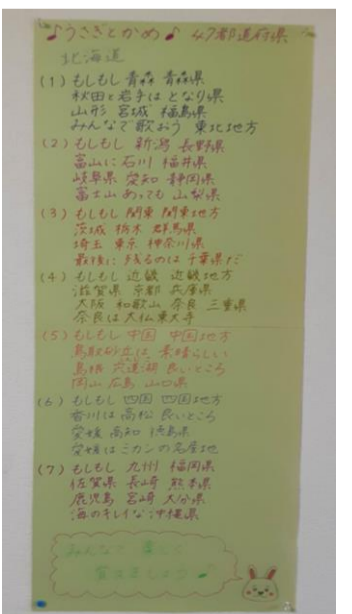 ♪うさぎとかめ♪ 47都道府県
北海道
(1) もしもし 青森 青森県
秋田と岩手は となり県
山形 宮城 福島県
みんなで歌おう 東北地方
(2) もしもし 新潟 長野県
富山に 石川 福井県
岐阜県 愛知 静岡県
富士山 あっても 山梨県
(3) もしもし 関東 関東地方
茨城 栃木 群馬県
埼玉 東京 神奈川県
最後に 残るのは 千葉県だ
(4) もしもし 近畿 近畿地方
滋賀県 京都 兵庫県
大阪 和歌山 奈良 三重県
奈良は 大仏 東大寺
(5) もしもし 中国 中国地方
鳥取砂丘は、素晴らしい
島根 宍道湖 良いところ
岡山 広島 山口県
(6) もしもし 四国 四国地方
香川は 高松 良いところ
愛媛 高知 徳島県
愛媛は ミカンの 名産地
(7) もしもし 九州 福岡県
佐賀県 長崎 熊本県
鹿児島 宮崎 大分県
海のキレイな 沖縄県
みんなで 楽しく